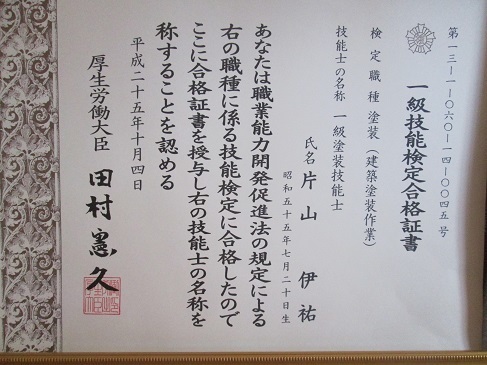 第一三―一―〇六〇―一四―〇〇四五号
一級技能検定合格証書
検定職種 塗装(建築塗装作業)
技能士の名称 一級塗装技能士
氏名 片山伊祐
昭和五十五年七月二十日生
あなたは職業能力開発促進法の規定による
右の職種に係る技能検定に合格したので
ここに合格証書を授与し右の技能士の名称を
称することを認める
平成二十五年十月四日
厚生労働大臣 田村憲久